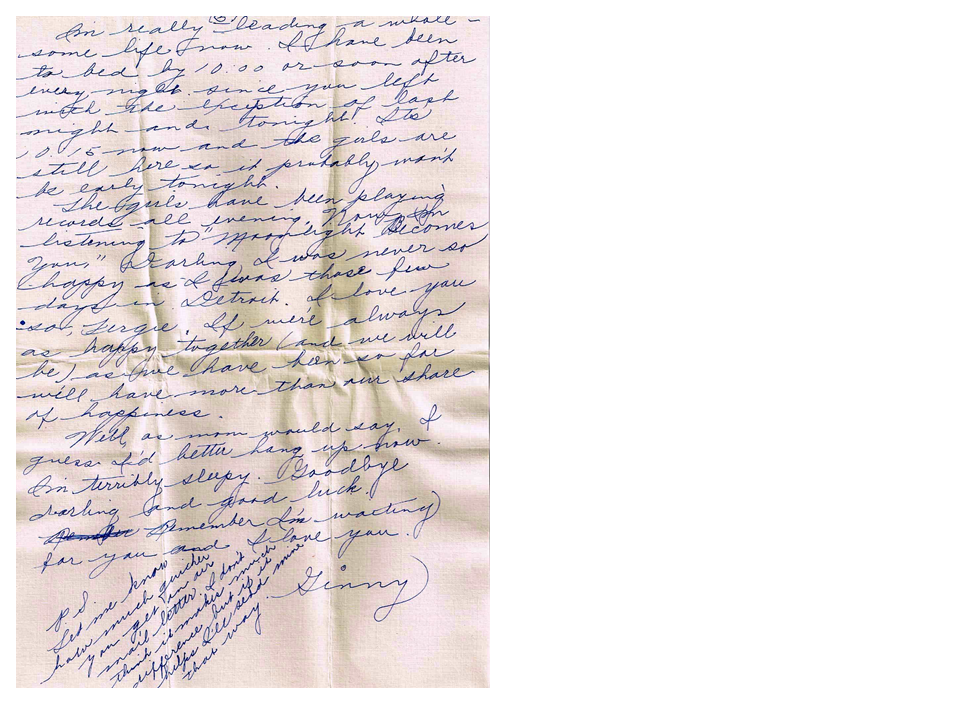 (6)
I'm really leading a whole-
some life now. I have been
to bed by 10:00 or soon after
every night since you left
with the exception of last
night and tonight! It's
10:15 now and the girls are
still here so it probably won't
be early tonight.
The girls have been playing
records all evening. Now I'm
listening to "Moonlight Becomes
You," Darling I was never so
happy as I was those few
days in Detroit. I love you
so, Fergie. If we're always
as happy together (and we will
be) as we have been so far
we'll have more than our share
of happiness.
Well, as mom would say, I
guess I'd better hang up now.
I'm terribly sleepy. Goodbye
darling and good luck.
Remember I'm waiting
for you and I love you.
Ginny
P.S.
Let me know
how much quicker
you get an air
mail letter. I don't
think it makes much
difference but if it
helps I'll send mine
that way.